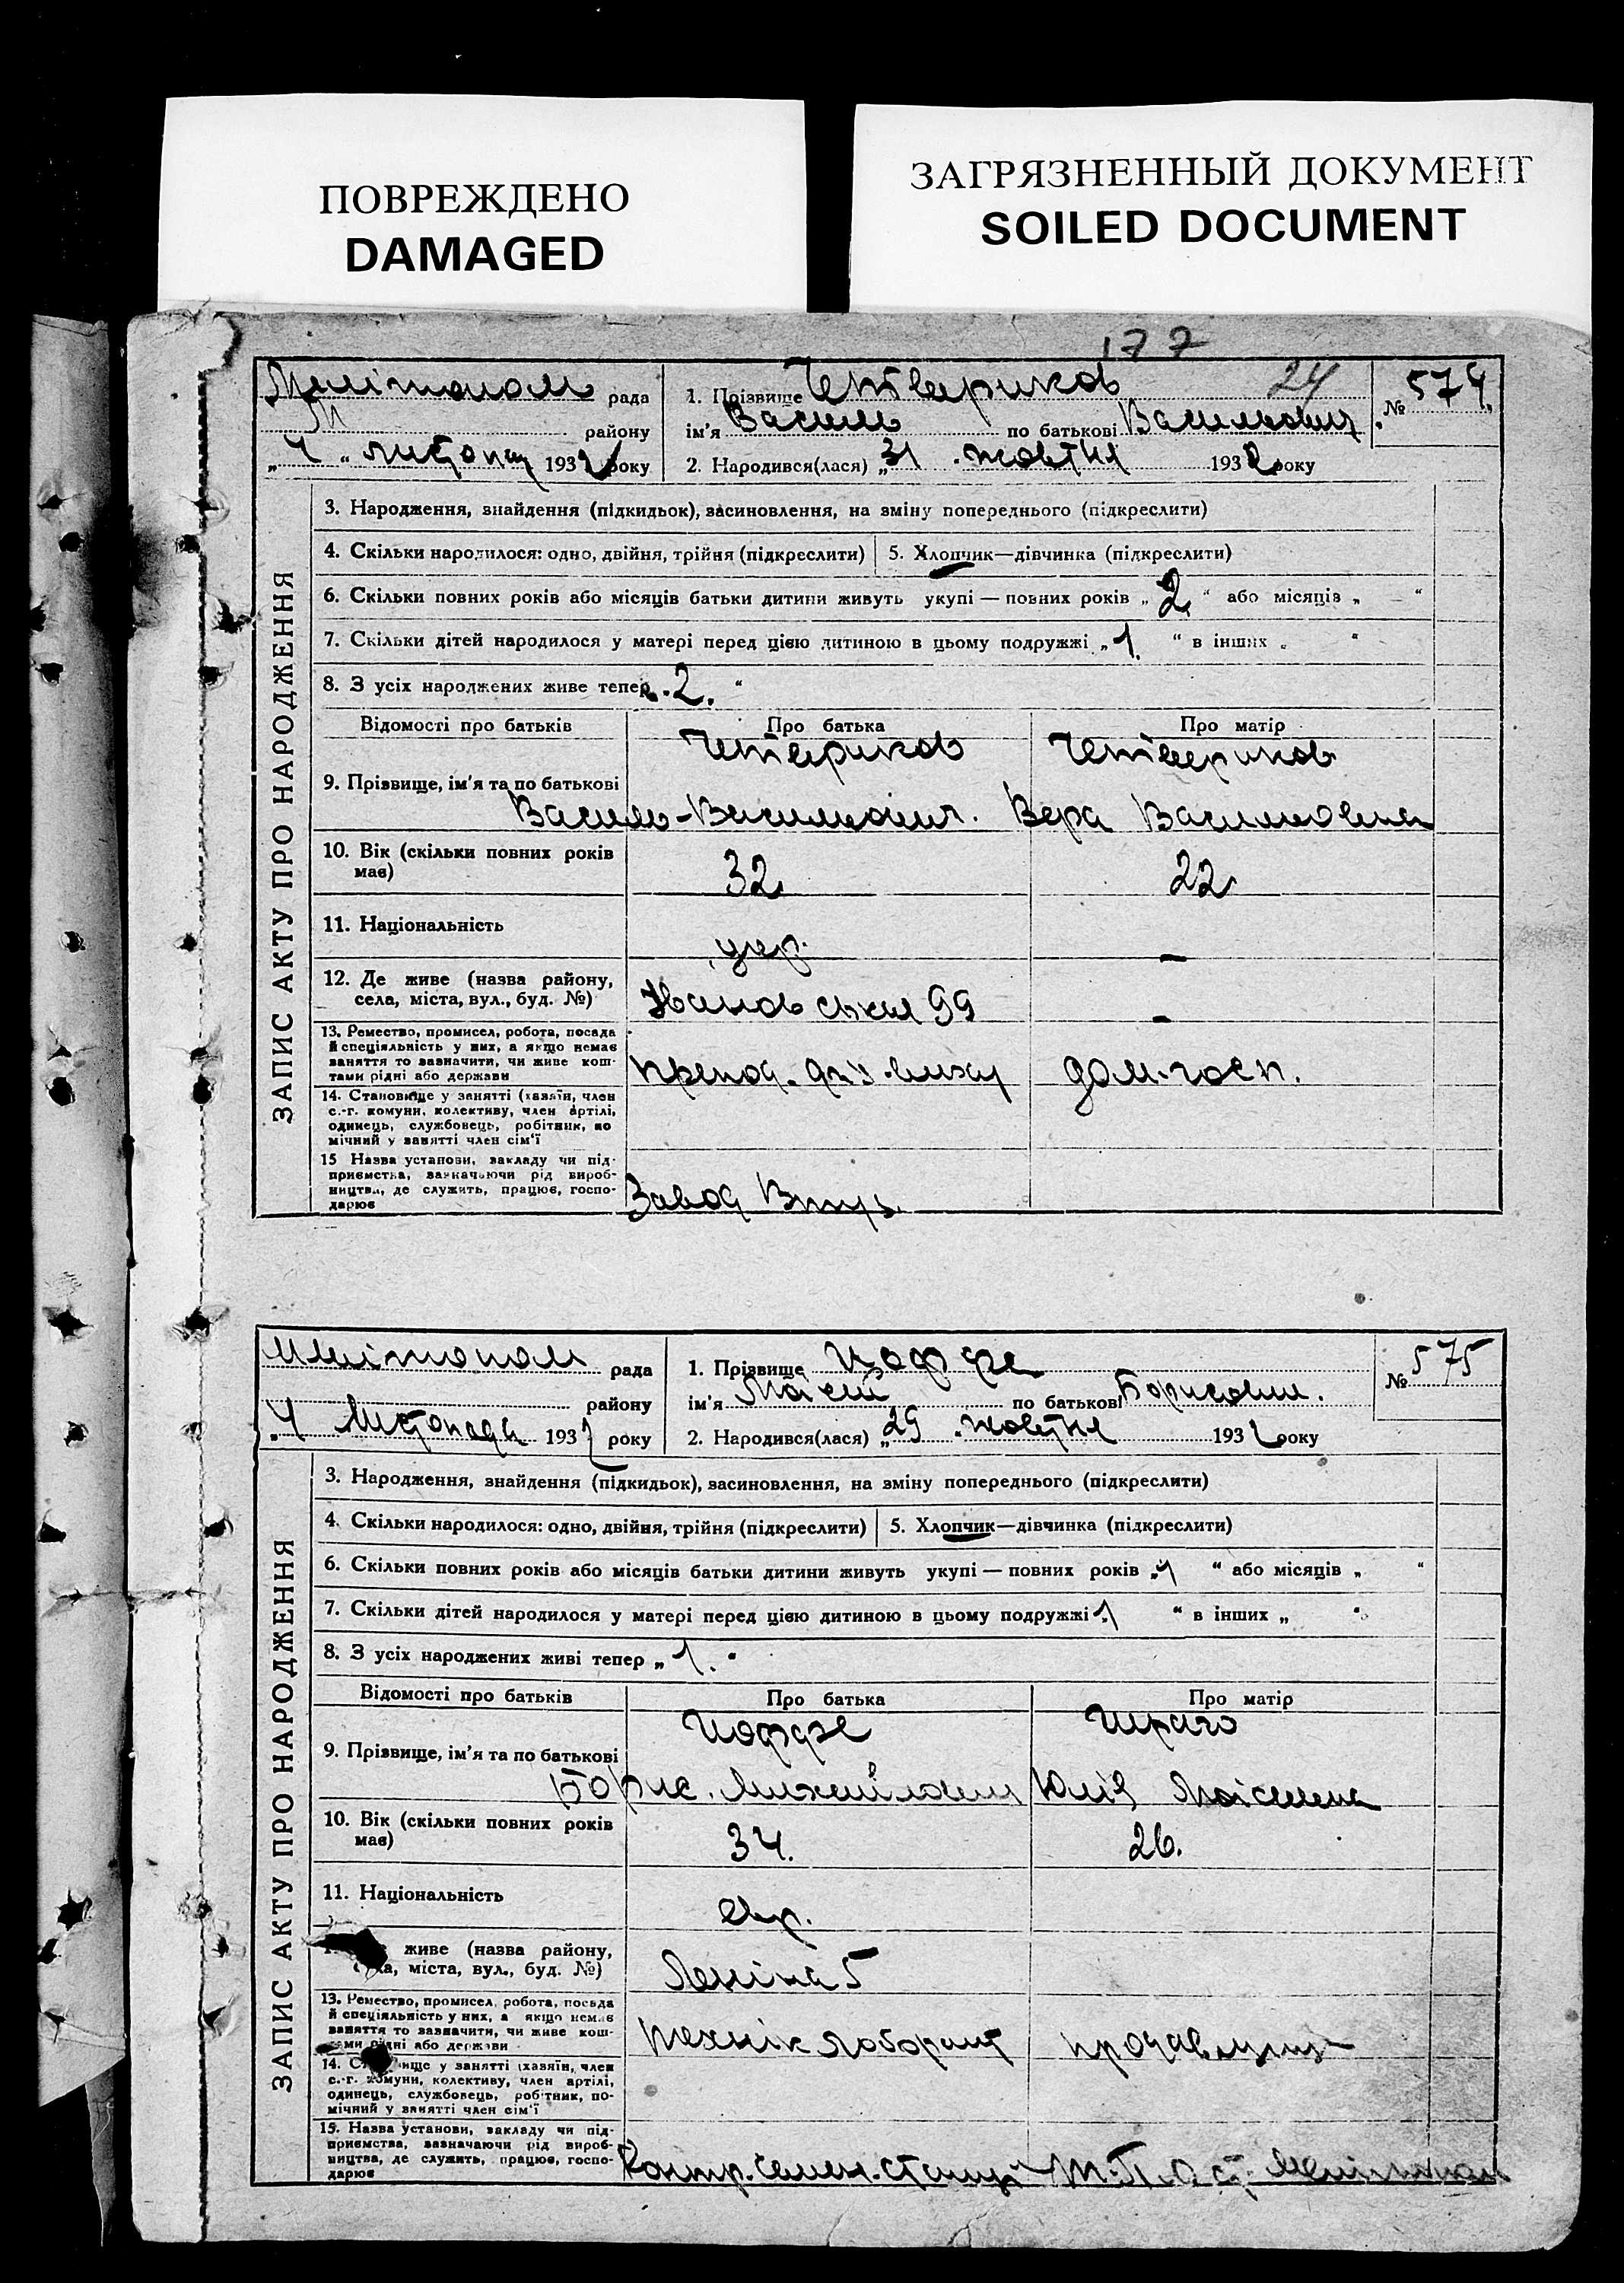 ПОВРЕЖДЕНО
DAMAGED
ЗАГРЯЗНЕННЫЙ ДОКУМЕНТ
SOILED DOCUMENT
177
24
рада
М району
„4“ листопад 1932 року
1. Прізвище Четвериков
ім'я Василь по батькові Васильович
2. Народився(лася) „31 жовтня 1932 року
№ 574
ЗАПИС АКТУ ПРО НАРОДЖЕННЯ
3. Народження, знайдення (підкидьок), засиновлення, на зміну попереднього (підкреслити)
4. Скільки народилося: одно, двійня, трійня (підкреслити) 5. Хлопчик—дівчинка (підкреслити)
6. Скільки повних років або місяців батьки дитини живуть укупі — повних років „2“ або місяців „ “
7. Скільки дітей народилося у матері перед цією дитиною в цьому подружжі „1.“ в інших „ “
8. З усіх народжених живе тепер „2.“
Відомості про батьків Про батька Про матір
9. Прізвище, ім'я та по батькові Четвериков Четверикова
Василь-Васильович. Вера Васильовна
10. Вік (скільки повних років має) 32 22
11. Національність укр. –
12. Де живе (назва району, села, міста, вул., буд. №) 99 –
13. Ремество, промисел, робота, посада й спеціяльність у них, а якщо немає заняття то зазначити, чи живе коштами рідні або держави препод. дом.госп.
14. Становище у занятті (хазяїн, член с.-г. комуни, колективу, член артілі, одинець, службовець, робітник, помічний у занятті член сім'ї
15 Назва установи, закладу чи підприємства, зазначаючи рід виробництва, де служить, працює, господарює Завод Втуз
рада
району
„4 Листопада 1932 року
1. Прізвище Иоффе
ім'я по батькові Борисович.
2. Народився(лася) „29 жовтня 1932 року
№ 575
ЗАПИС АКТУ ПРО НАРОДЖЕННЯ
3. Народження, знайдення (підкидьок), засиновлення, на зміну попереднього (підкреслити)
4. Скільки народилося: одно, двійня, трійня (підкреслити) 5. Хлопчик—дівчинка (підкреслити)
6. Скільки повних років або місяців батьки дитини живуть укупі — повних років „ “ або місяців „ “
7. Скільки дітей народилося у матері перед цією дитиною в цьому подружжі „1 “ в інших „ “
8. З усіх народжених живі тепер „1.“
Відомості про батьків Про батька Про матір
9. Прізвище, ім'я та по батькові Иоффе
Борис. Михайлович Юлія Моісеевна
10. Вік (скільки повних років має) 34. 26.
11. Національність евр.
живе (назва району, міста, вул., буд. №) Леніна 5
13. Ремество, промисел, робота, посада й спеціяльність у них, а якщо немає заняття то зазначити, чи живе коштами рідні або держави Технік лаборант продавщиця
14. Становище у занятті (хазяїн, член с.-г. комуни, колективу, член артілі, одинець, службовець, робітник, помічний у занятті член сім'ї
15. Назва установи, закладу чи підприємства, зазначаючи рід виробництва, де служить, працює, господарює Контр. семен. станції